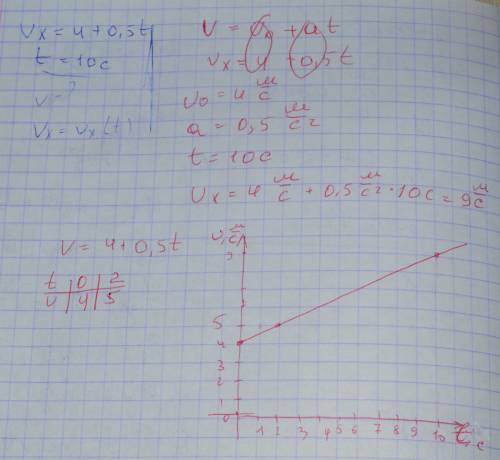 Vx = 4 + 0,5t
t = 10c
v = ?
Vx = Vx(t)
V = Vx + at
Vx = 4 + 0,5t
V0 = 4 м/с
a = 0,5 м/с2
t = 10c
Vx = 4 м/с + 0,5 м/с2 · 10c = 9 м/с
V = 4 + 0,5t
t 0 2
v 4 5
v, м/с
9
5
4
3
2
1
0
1 2 3 4 5 6 7 8 9 10 t, c